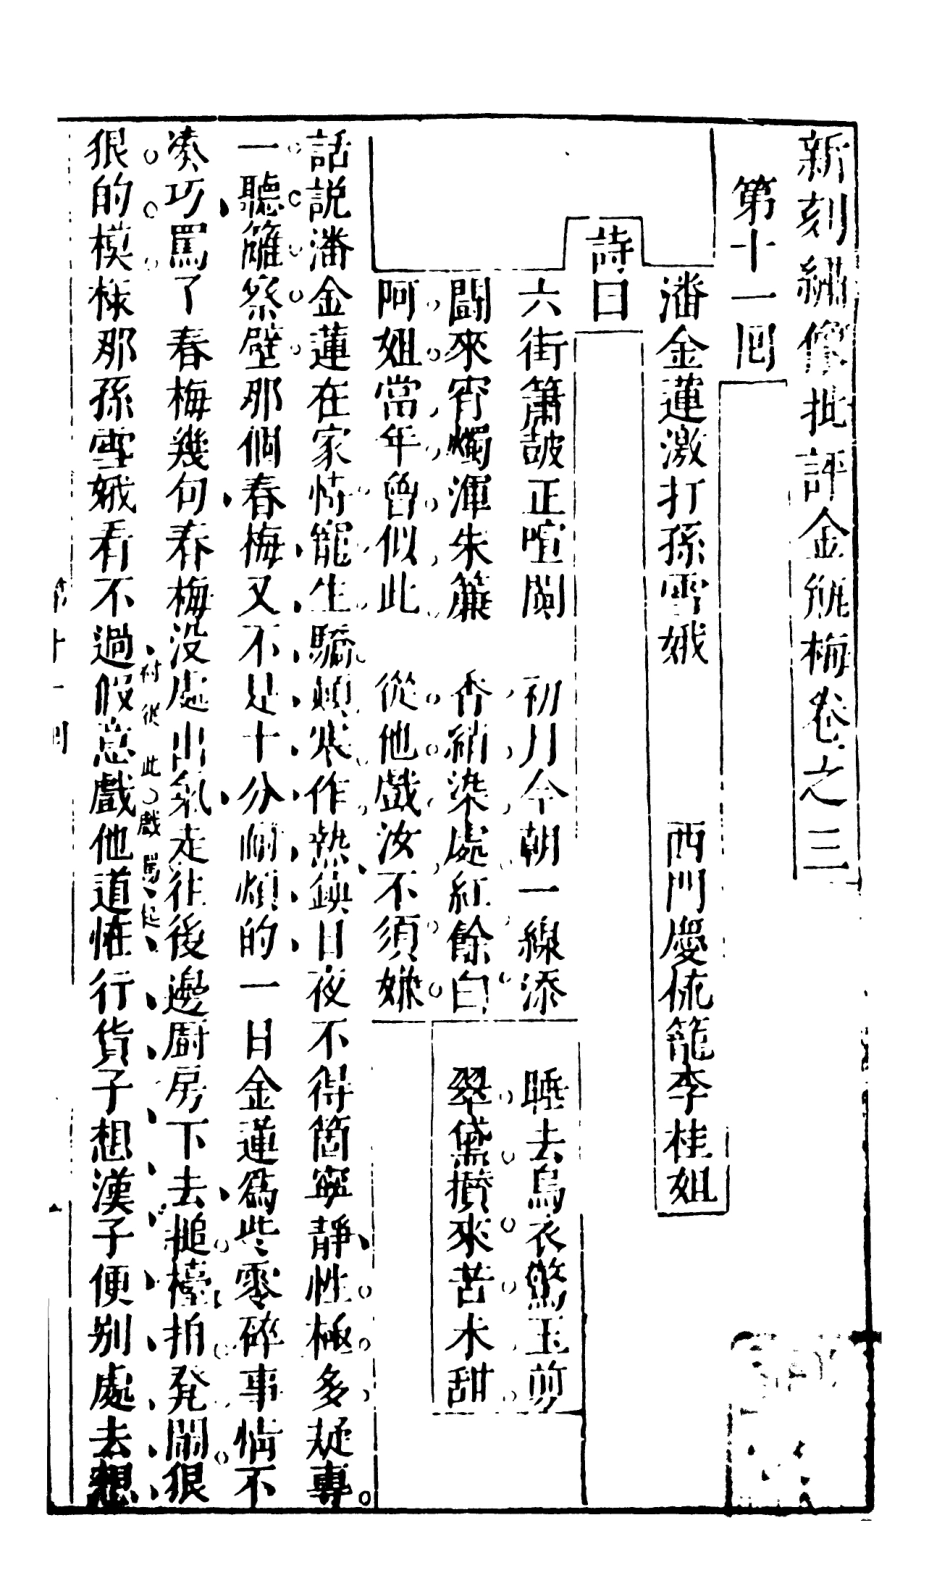 新刻繡像批評金瓶梅卷之三
第十一回
潘金蓮激打孫雪娥 西門慶梳籠李桂姐
詩曰
六街簫鼓正喧闐 初月今朝一線添 睡去烏衣驚玉剪
鬪來宵燭渾朱簾 香綃染處紅餘白 翠黛攢來苦未甜
阿姐當年曾似此 從他戲汝不須嫌
話說潘金蓮在家恃寵生驕顛寒作熱鎮日夜不得箇寧靜性極多疑專
一聽籬察壁那個春梅又不是十分耐煩的一日金蓮爲些零碎事情不
湊巧罵了春梅幾句春梅没處出氣走往後邊厨房下去搥檯拍凳閙狠
狠的模様那孫雪娥看不過假意戲他道恠行貨子想漢子便别處去想
從此戲罵起
第十一囘